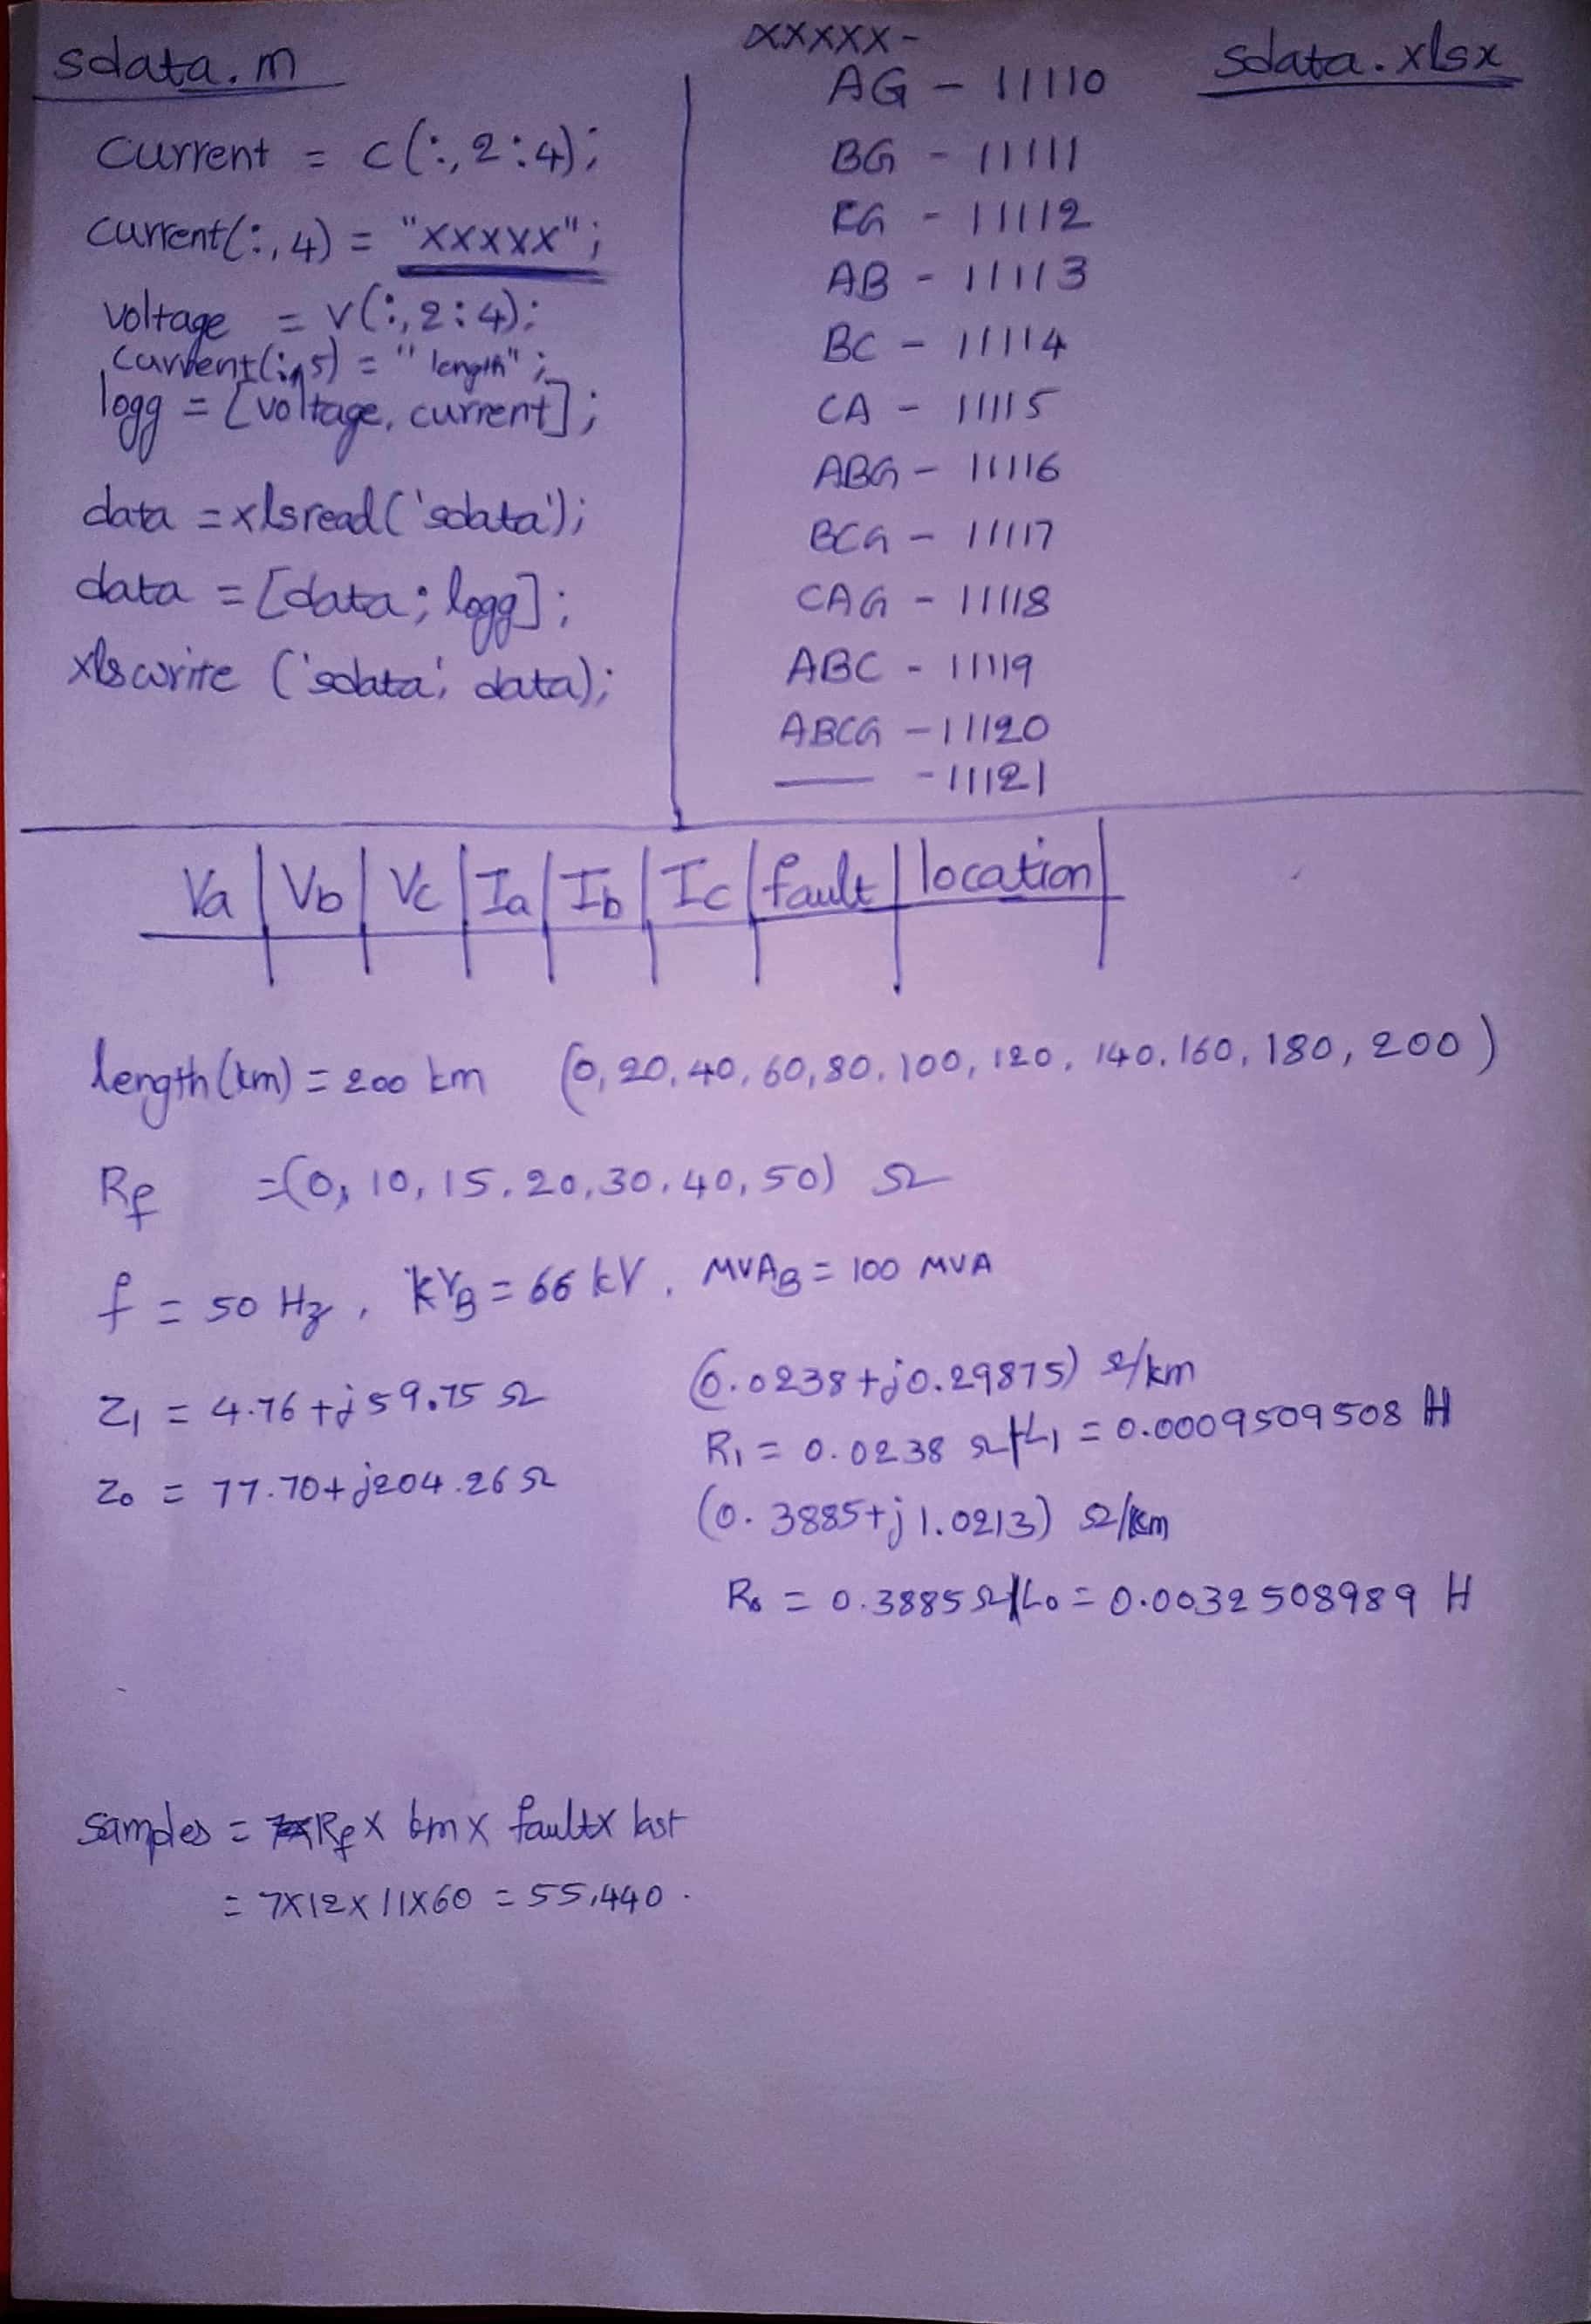 sdata.m
current = c(:,2:4);
current(:,4) = "xxxxx";
voltage = v(:,2:4);
current(:,5) = "length";
logg = [voltage, current];
data = xlsread('sdata');
data = [data; logg];
xlswrite ('sdata', data);
xxxxx -
AG - 11110
BG - 11111
CG - 11112
AB - 11113
BC - 11114
CA - 11115
ABG - 11116
BCG - 11117
CAG - 11118
ABC - 11119
ABCG - 11120
—— - 11121
sdata.xlsx
Va | Vb | Vc | Ia | Ib | Ic | fault | location |
length (km) = 200 km (0, 20, 40, 60, 80, 100, 120, 140, 160, 180, 200)
Rf = (0, 10, 15, 20, 30, 40, 50) Ω
f = 50 Hz, kVB = 66 kV, MVAB = 100 MVA
Z1 = 4.76 + j59.75 Ω (0.0238 + j0.29875) Ω/km
R1 = 0.0238 Ω L1 = 0.0009509508 H
Z0 = 77.70 + j204.26 Ω (0.3885 + j1.0213) Ω/km
R0 = 0.3885 Ω L0 = 0.0032508989 H
samples = Rf x km x fault x last
= 7x12x11x60 = 55,440.